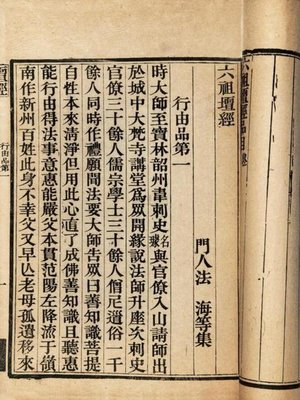 六祖壇經
門人法 海等集
行由品第一
時大師至寶林韶州韋刺史名璩與官僚入山請師出
於城中大梵寺講堂爲眾開緣說法師升座次刺史
官僚三十餘人儒宗學士三十餘人僧尼道俗一千
餘人同時作禮願聞法要大師告眾曰善知識菩提
自性本來清淨但用此心直了成佛善知識且聽惠
能行由得法事意惠能嚴父本貫范陽左降流于嶺
南作新州百姓此身不幸父又早亡老母孤遺移來
壇經
行由品第一